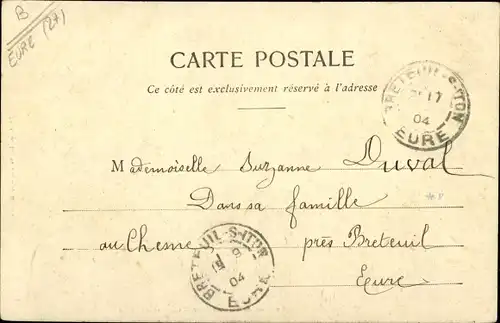 B
EURE (27)
CARTE POSTALE
Ce côté est exclusivement réservé à l'adresse
BRETEUIL-S-ITON
17
04
EURE
Mademoiselle Suzanne Duval
Dans sa famille
au Chesne près Breteuil
Eure
BRETEUIL-S-ITON
04
EURE